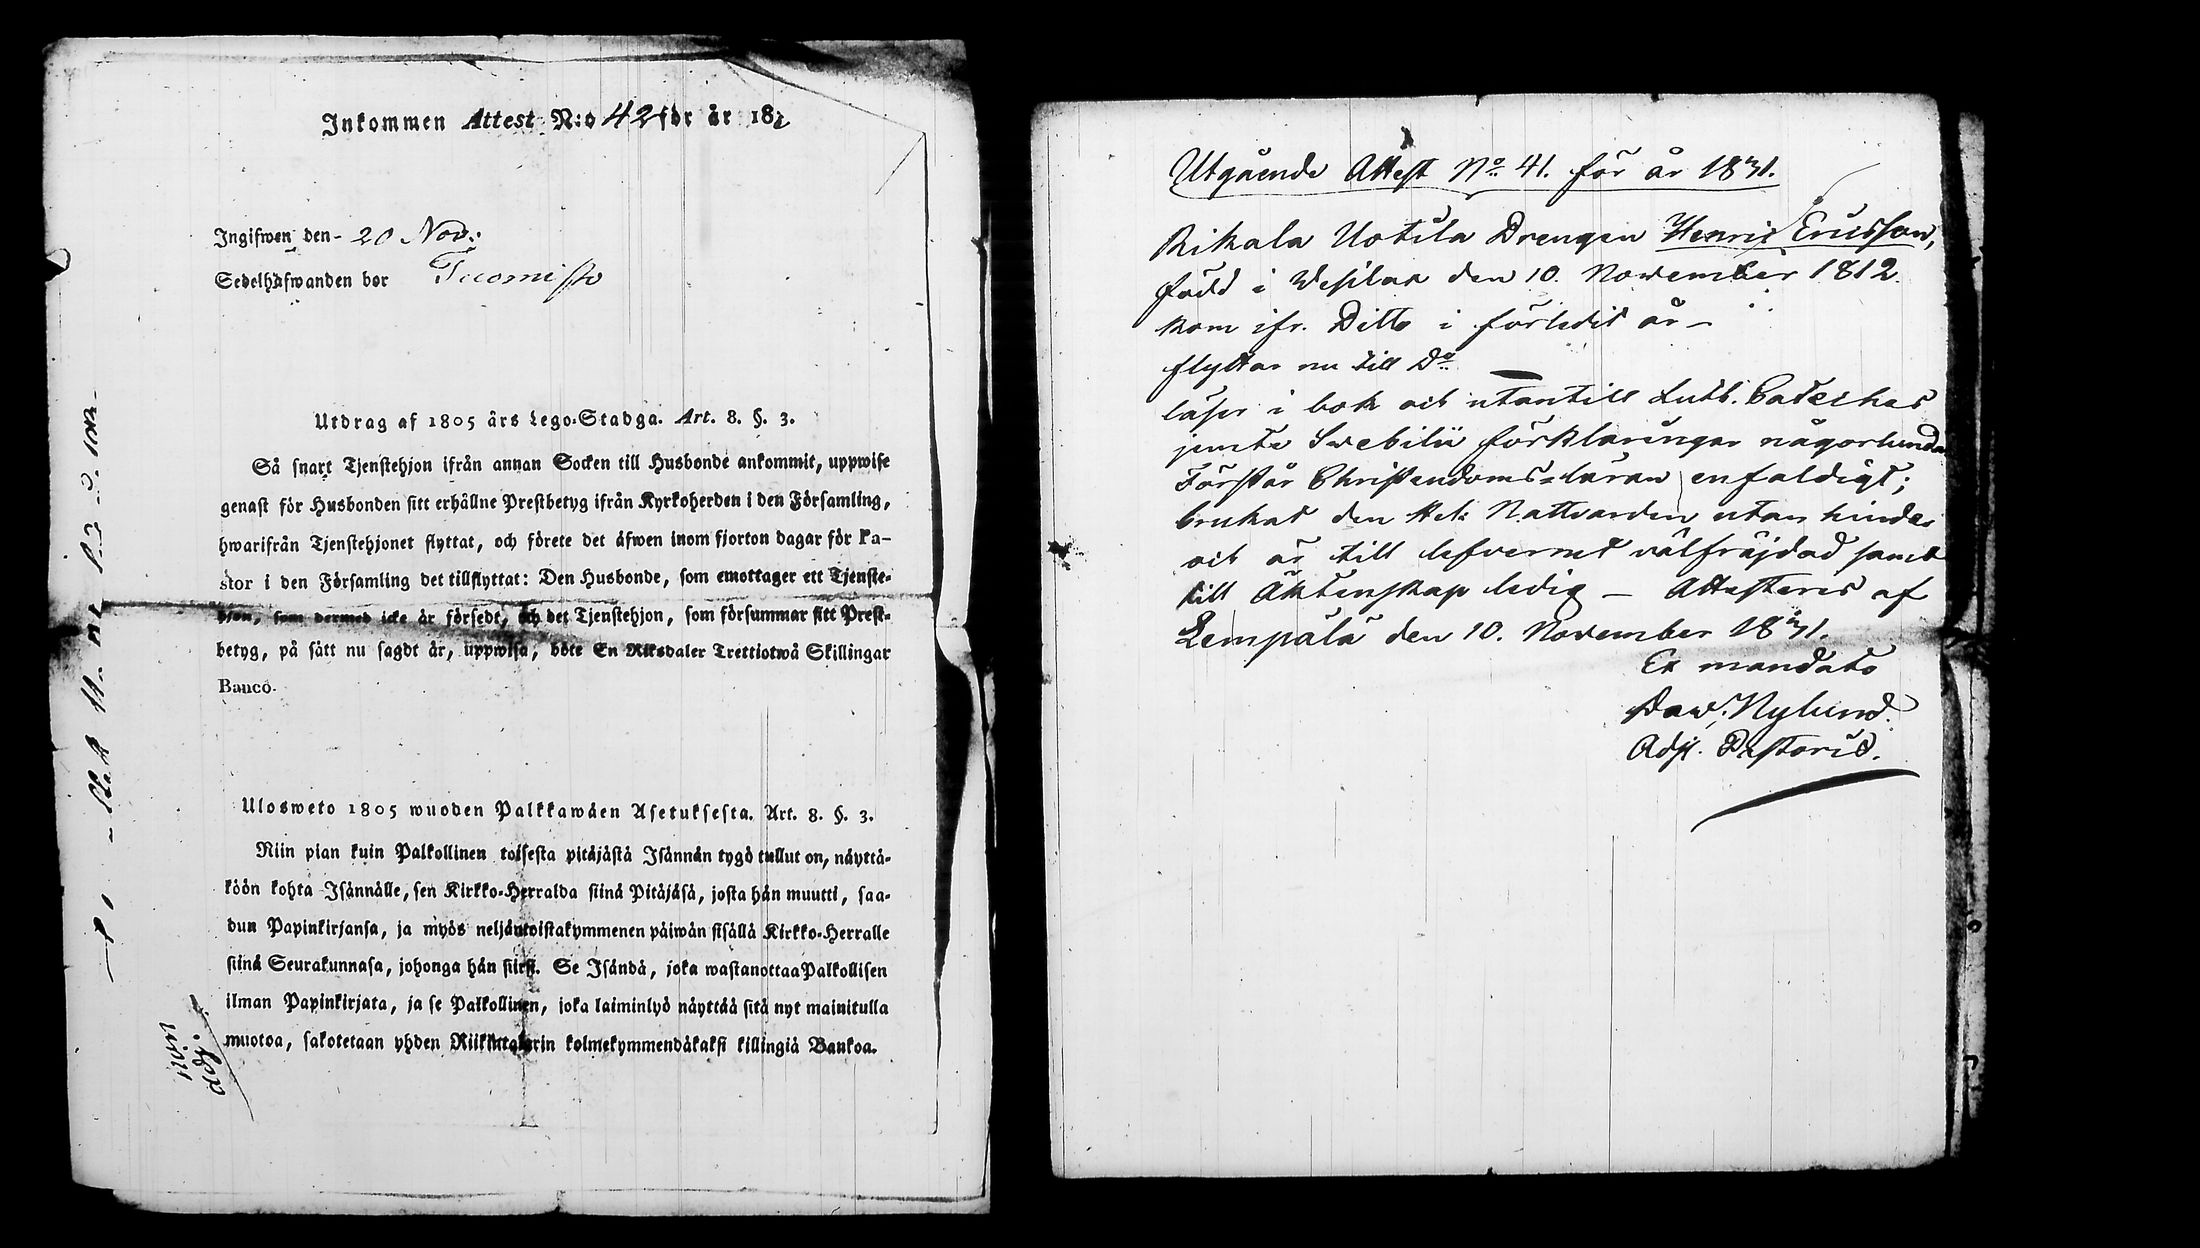 Inkommen Attest N:o 42 för år 18
Ingifwen den 20 Nov:
Sedelhafwanden bor Tuomisto
Utdrag af 1805 års Lego-Stadga. Art. 8. §. 3.
Så snart Tjenstehjon ifrån annan Socken till Husbonde ankommit, uppwise
genast för Husbonden sitt erhållne Prestbetyg ifrån Kyrkoherden i den Församling,
hwarifrån Tjenstehjonet flyttat, och förete det äfwen inom fjorton dagar för Pa-
stor i den Församling det tillflyttat: Den Husbonde, som emottager ett Tjenste-
hjon, som dermed icke är försedt, och det Tjenstehjon, som försummar sitt Prest-
betyg, på sätt nu sagdt är, uppwisa, böte En Riksdaler Trettiotwå Skillingar
Banco.
Ulosweto 1805 wuoden Palkkawäen Asetuksesta. Art. 8. §. 3.
Niin pian kuin Palkollinen toisesta pitäjästä Isännän tygö tullut on, näyttä-
köön kohta Isännälle, sen Kirkko-Herralda siinä Pitäjäsä, josta hän muutti, saa-
dun Papinkirjansa, ja myös neljäntoistakymmenen päiwän sisällä Kirkko-Herralle
siinä Seurakunnasa, johonga hän siirsi. Se Isändä, joka wastanottaa Palkollisen
ilman Papinkirjata, ja se Palkollinen, joka laiminlyö näyttää sitä nyt mainitulla
muotoa, sakotetaan yhden Riikintalarin kolmekymmendäkaksi killingiä Bankoa.
Utgående Attest No 41. för år 1831.
Kikala Uotila Drengen Henric Ericsson,
född i Wesilax den 10. November 1812.
kom ifr. Ditto i förledit år –
flyttar nu till Do
läser i bok och utantill Luth. Cateches
jemte Swebilii förklaringar någorlunda
Förstår Christendoms-läran enfaldigt;
brukat den Hel: Nattvarden utan hinder
och är till lefvernet välfräjdad samt
till Äktenskap ledig – Attesteras af
Lempälä den 10. November 1831.
Ex mandato
Daw: Nylund.
Adj. Pastoris.